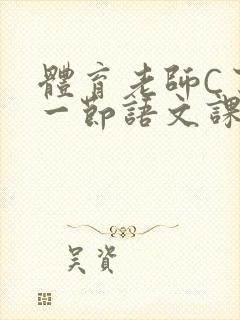 體育老師C
一節語文課
吴資